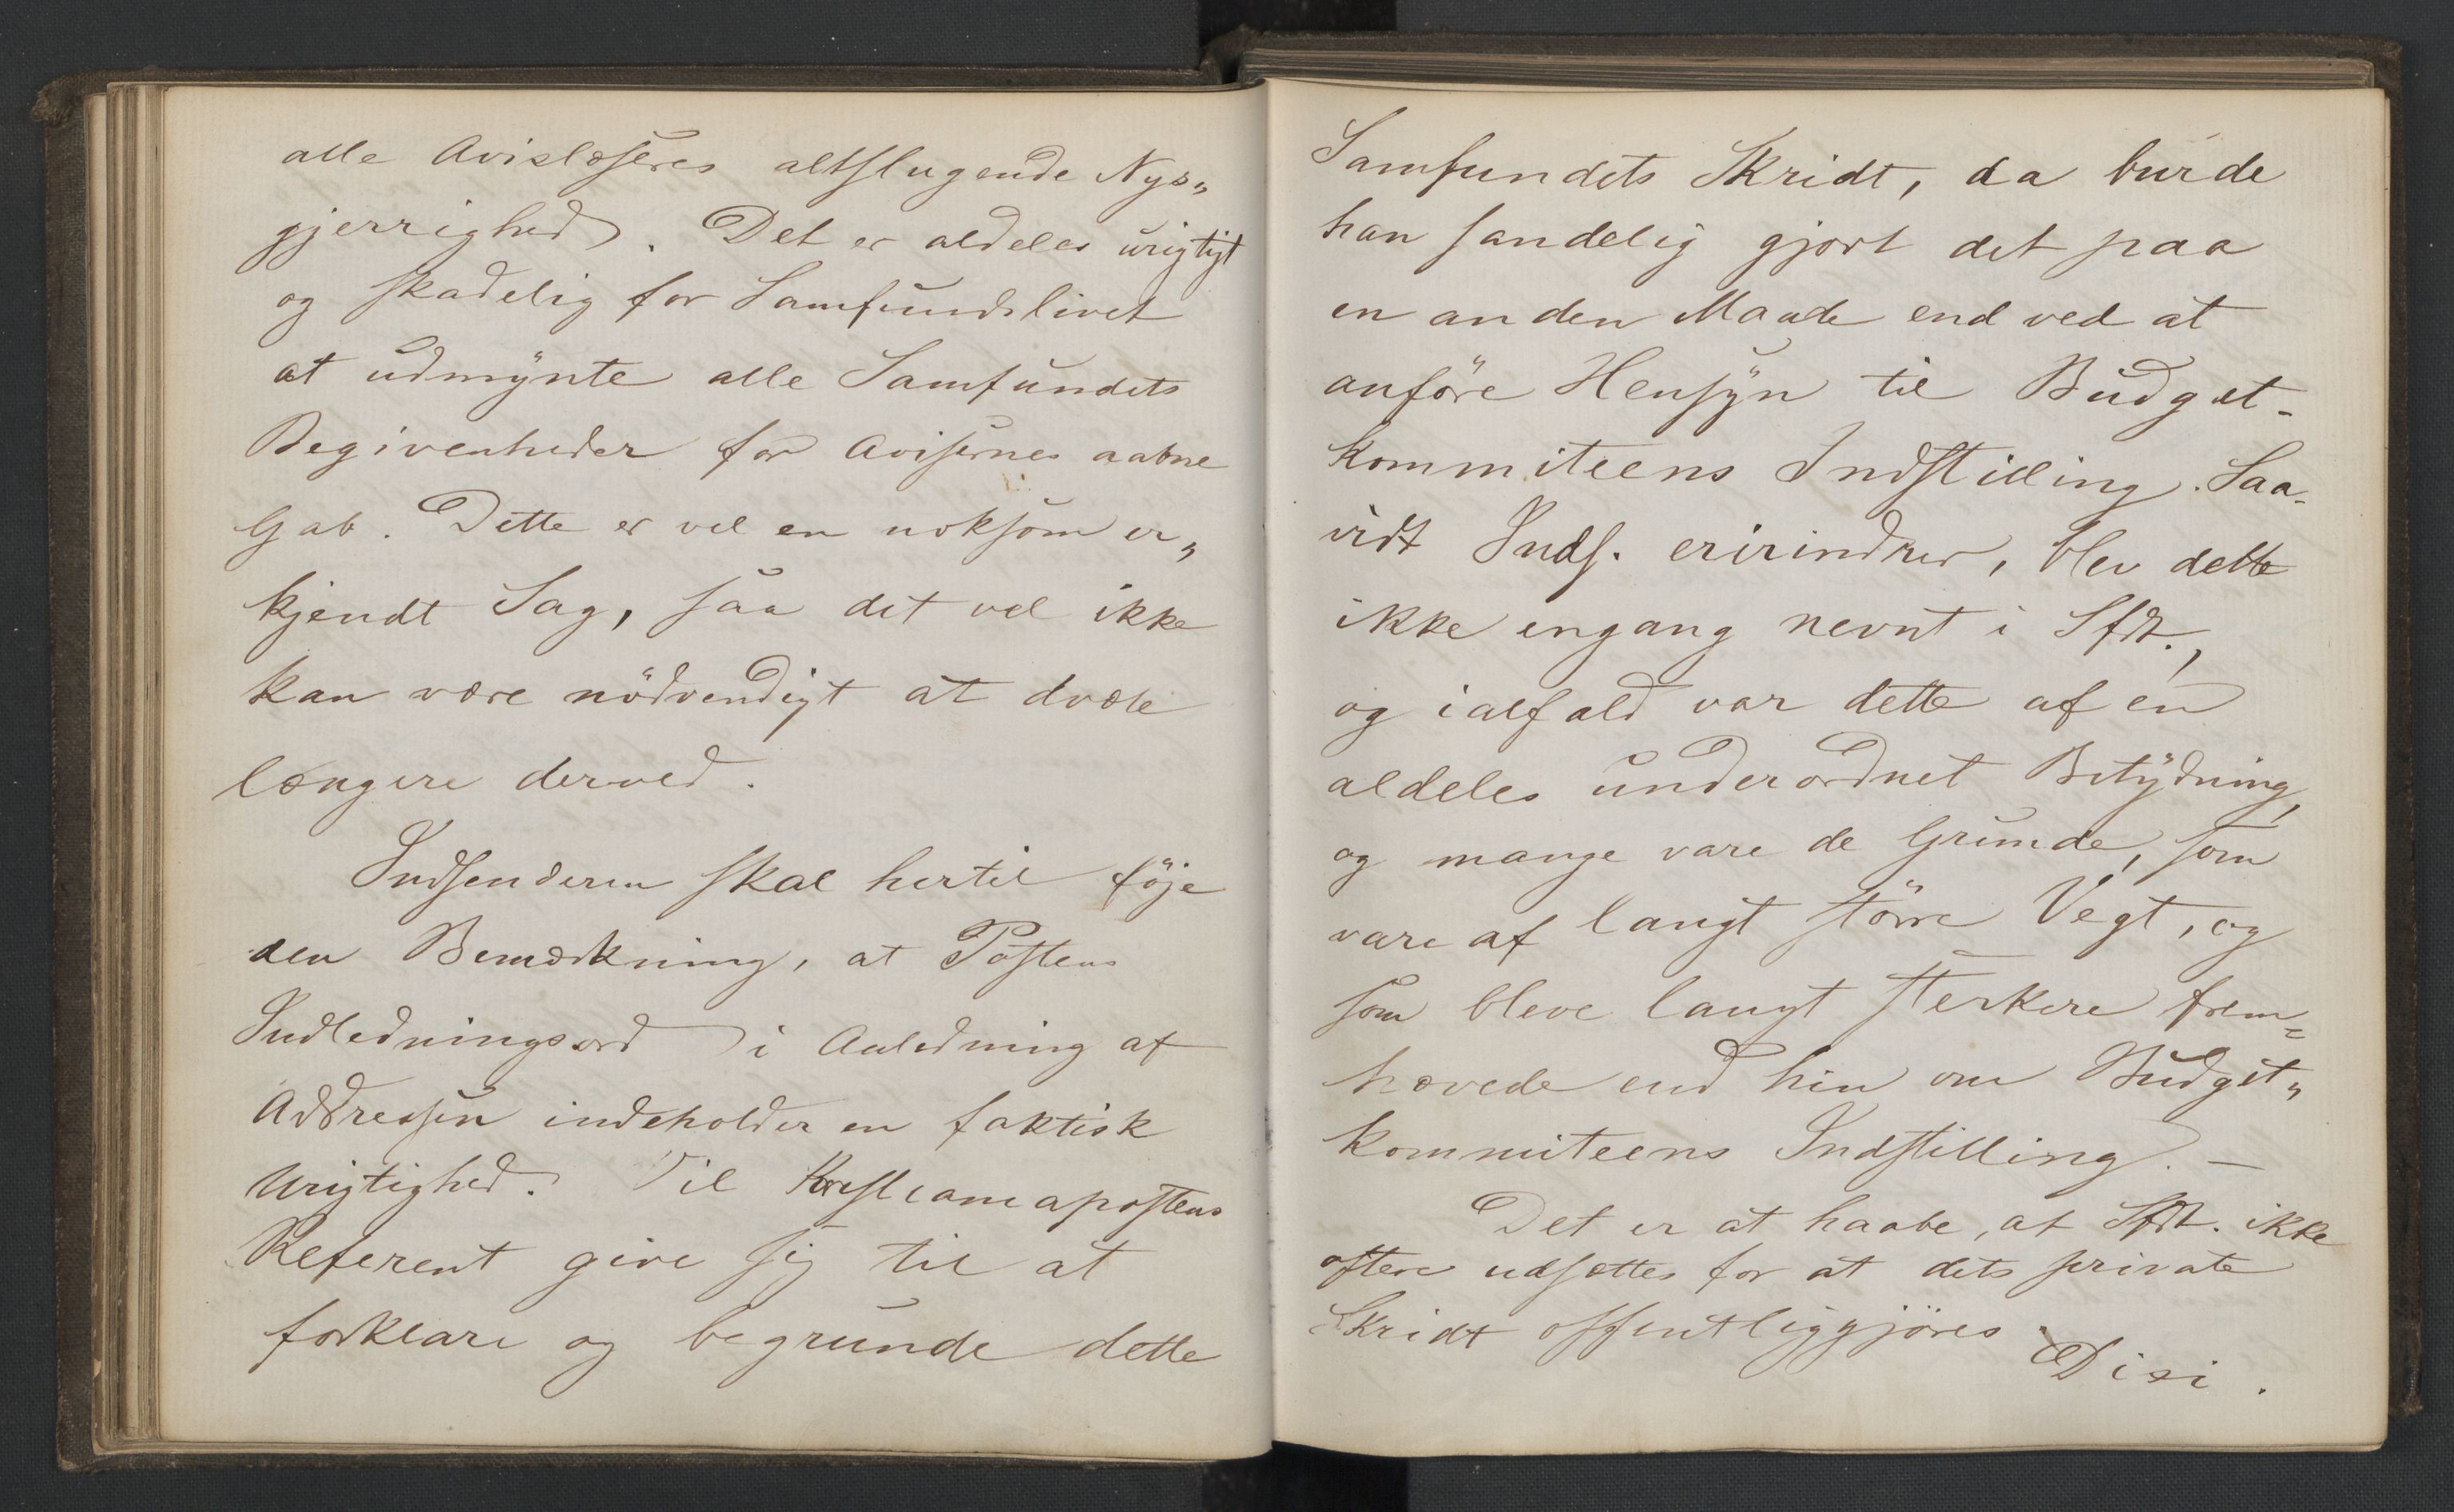 alle Avislæseres altslugende Nys„
gjerrighed. Det er aldeles urigtigt
og skadelig for Samfundslivet
at udmynte alle Samfundets
Begivenheder for Avisernes aabne
Gab. Dette er vel en noksom er„
kjendt Sag, saa det vel ikke
kan være nödvendigt at dvæle
længere derved.
Indsenderen skal hertil föje
den Bemærkning, at Postens
Indledningsord i Anledning af
Addressen indeholder en faktisk
Urigtighed. Vil Kristianiapostens
Referent give sig til at
forklare og begrunde dette
Samfundets Skridt, da burde
han sandelig gjort det paa
en anden Maade end ved at
anföre Hensyn til Budget-
kommiteens Indstilling. Saa-
vidt Inds. eririndrer, blev dette
ikke engang nevnt i Sfdt.,
og ialfald var dette af en
aldeles underordnet Betydning,
og mange vare de Grunde, som
vare af langt större Vegt, og
som bleve langt sterkere frem=
hævede end hin om Budget„
kommiteens Indstilling. —
Det er at haabe, at Sfdt. ikke
oftere udsættes for at dets private
Skridt offentliggjöres.
Dixi.